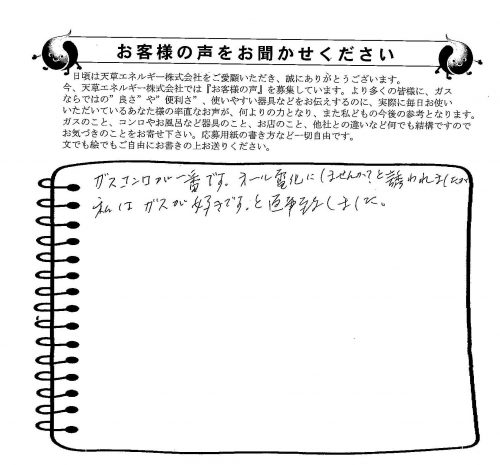 お客様の声をお聞かせください
日頃は天草エネルギー株式会社をご愛願いただき、誠にありがとうございます。
今、天草エネルギー株式会社では『お客様の声』を募集しています。より多くの皆様に、ガス
ならではの”良さ”や”便利さ”、使いやすい器具などをお伝えするのに、実際に毎日お使い
いただいているあなた様の率直なお声が、何よりの力となり、また私どもの今後の参考となります。
ガスのこと、コンロやお風呂など器具のこと、お店のこと、他社との違いなど何でも結構ですので
お気づきのことをお寄せ下さい。応募用紙の書き方など一切自由です。
文でも絵でもご自由にお書きの上お送りください。
ガスコンロが一番です。オール電化にしませんか?と誘われましたが
私はガスが好きです。としました。